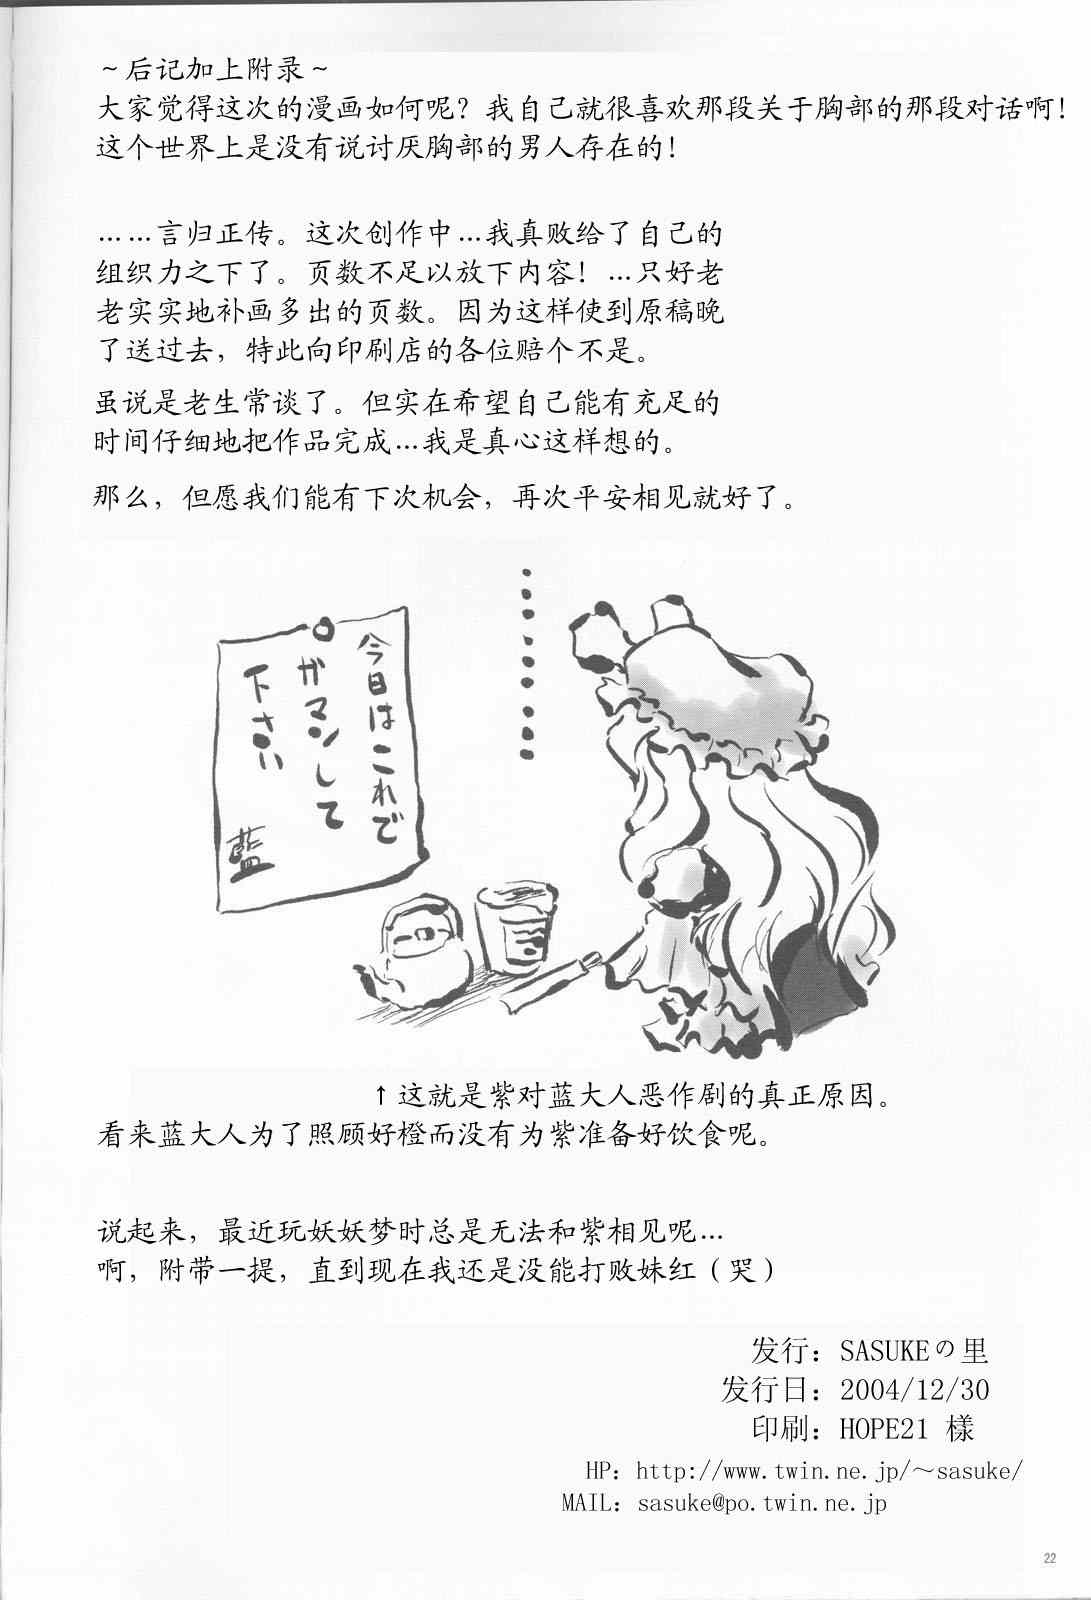 ～后记加上附录～
大家觉得这次的漫画如何呢？我自己就很喜欢那段关于胸部的那段对话啊！
这个世界上是没有说讨厌胸部的男人存在的！
……言归正传。这次创作中…我真败给了自己的
组织力之下了。页数不足以放下内容！…只好老
老实实地补画多出的页数。因为这样使到原稿晚
了送过去，特此向印刷店的各位赔个不是。
虽说是老生常谈了。但实在希望自己能有充足的
时间仔细地把作品完成…我是真心这样想的。
那么，但愿我们能有下次机会，再次平安相见就好了。
………
今日はこれで
ガマンして
下さい
藍
↑这就是紫对蓝大人恶作剧的真正原因。
看来蓝大人为了照顾好橙而没有为紫准备好饮食呢。
说起来，最近玩妖妖梦时总是无法和紫相见呢…
啊，附带一提，直到现在我还是没能打败妹红（哭）
发行：SASUKEの里
发行日：2004/12/30
印刷：HOPE21 樣
HP：http://www.twin.ne.jp/～sasuke/
MAIL：sasuke@po.twin.ne.jp
22